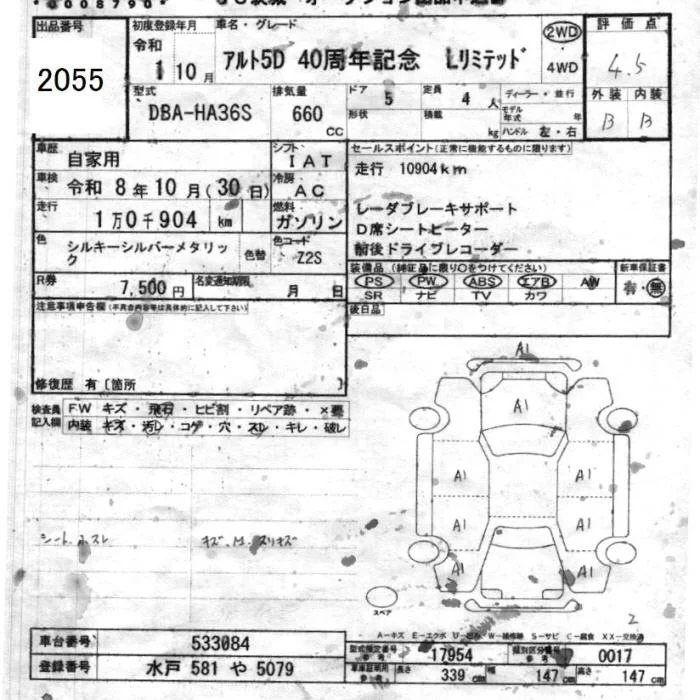 0008790
出品番号
2055
初度登録年月
令和
1 10月
車名・グレード
アルト5D 40周年記念 Lリミテッド
2WD
・
4WD
評価点
4.5
外装 内装
B B
型式
DBA-HA36S
排気量
660
CC
ドア
5
定員
4 人
形状
積載
kg
ディーラー・並行
モデル年式 年
ハンドル 左・右
車歴
自家用
シフト
IAT
車検
令和 8年10月(30日)
冷房
AC
走行
1万0千904 km
燃料
ガソリン
色
シルキーシルバーメタリック
色替
色コード
Z2S
R券
7,500円
名変通知期限
月 日
セールスポイント(正常に機能するものに限ります)
走行 10904km
レーダブレーキサポート
D席シートヒーター
前後ドライブレコーダー
装備品(純正品に限り○をつけてください)
PS PW ABS エアB AW
SR ナビ TV カワ
新車保証書
有・無
後日品
注意事項申告欄(不具合内容等は具体的に記入して下さい)
修復歴 有〔箇所 〕
検査員
記入欄
FW キズ・飛石・ヒビ割・リペア跡・×要
内装 キズ・汚レ・コゲ・穴・スレ・キレ・破レ
A1
A1
A1 A1
A1 A1
A1 A1
スペア
2
A-キズ E-エクボ
車台番号
533084
登録番号
水戸 581 や 5079
型式指定番号
参考
17954
類別区分番号
参考
0017
車庫証明用
参考
長さ
339 cm
幅
147 cm
高さ
147 cm